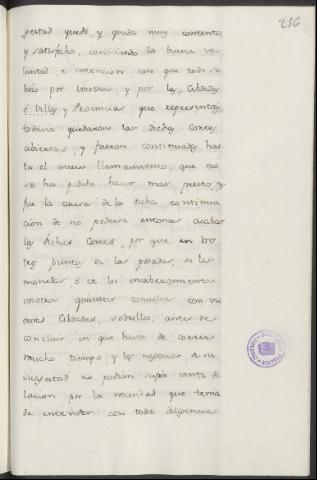 256
gestad quedó, y queda muy contento
y satisfecho, conosciendo la buena vo-
luntad, e intencion con que todo se
hizo por vosotros y por las Cibdades
é Villas y Provincias que representays
todavia quedaron las dichas Cortes
abiertas, y fueron continuadas has
ta el nuevo llamamiento, que no
se ha podido hacer mas presto, y
fue la causa de la dicha continua
cion de no poderse entonces acabar
las dichas Cortes, por que en los
tres puntos de las posadas, de las
monedas, é de los encabezamientos
vosotros quisisteis consultar con vu
estras Cibdades, sobrello, antes de
concluir, en que havia de correr
mucho tiempo, y los negocios de su
magestad no podian sufrir tanta di
lacion por la necesidad que tenia
de entender con toda diligencia